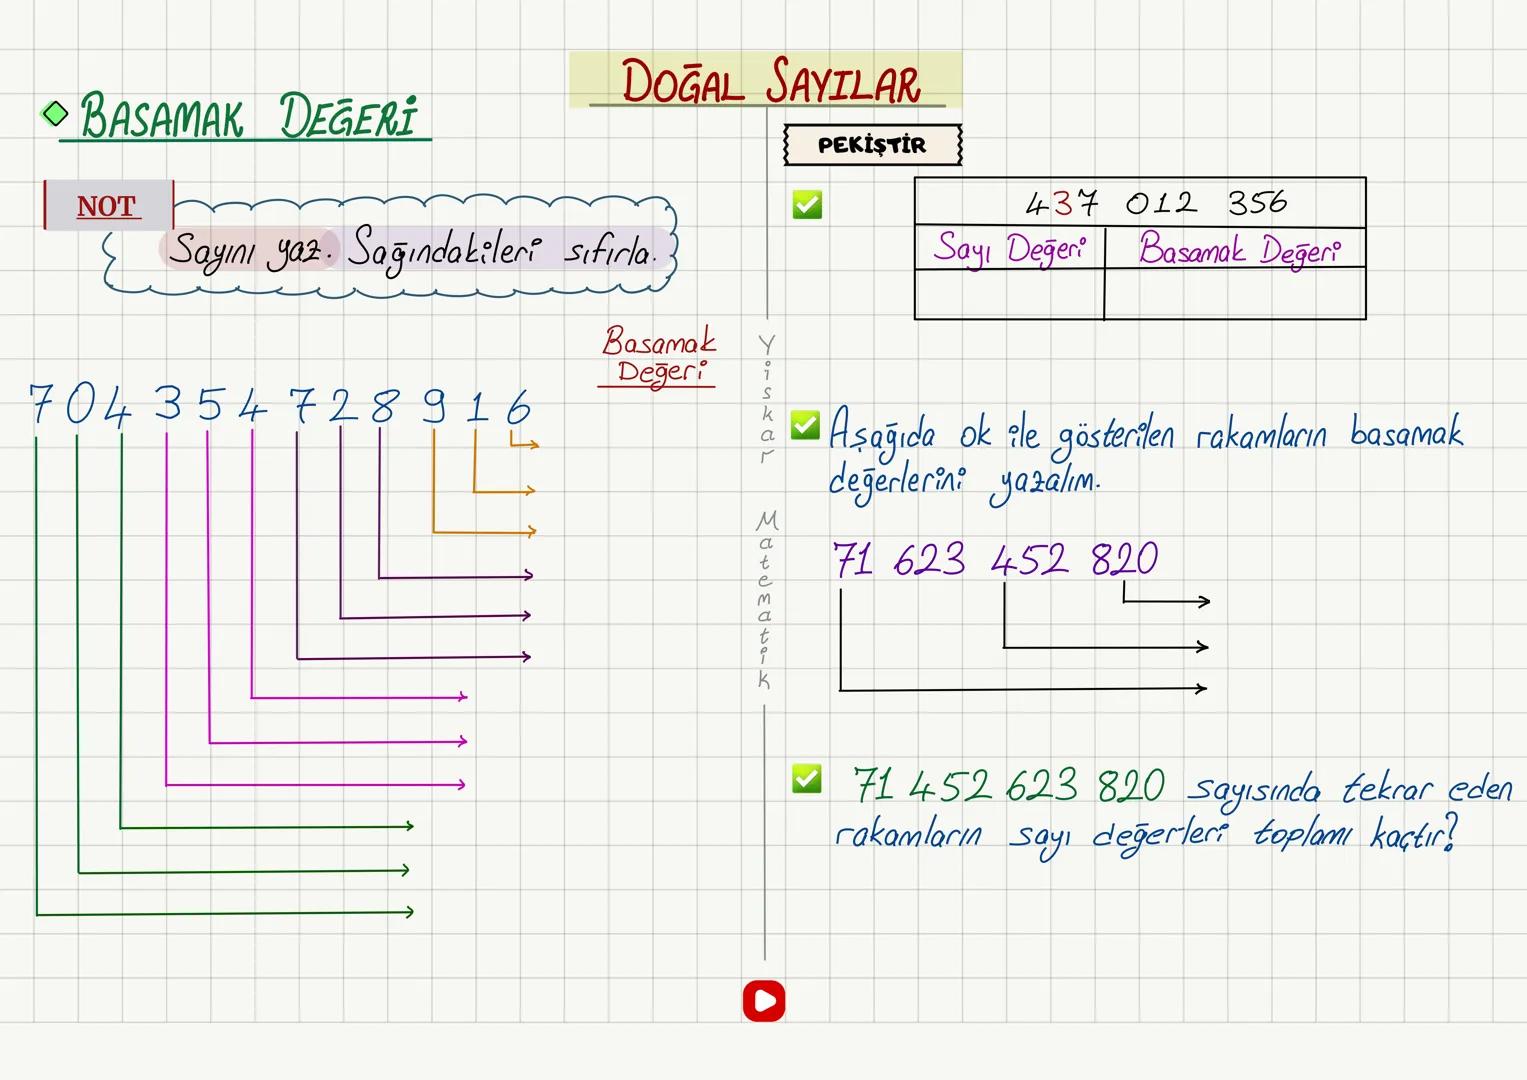 DOĞAL SAYILAR
BASAMAK DEĞERİ
NOT
Sayını yaz. Sağındakileri sıfırla.
Basamak
Değeri
704 354 728 916
Yiskar Matematik
PEKİŞTİR
437 012 356
Sayı Değeri Basamak Değeri
Aşağıda ok ile gösterilen rakamların basamak
değerlerini yazalım.
71 623 452 820
71 452 623 820 sayısında tekrar eden
rakamların sayı değerleri toplamı kaçtır?